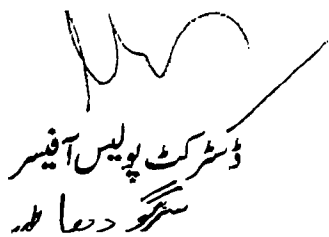 ڈسٹرکٹ پولیس آفیسر
سرگودھا